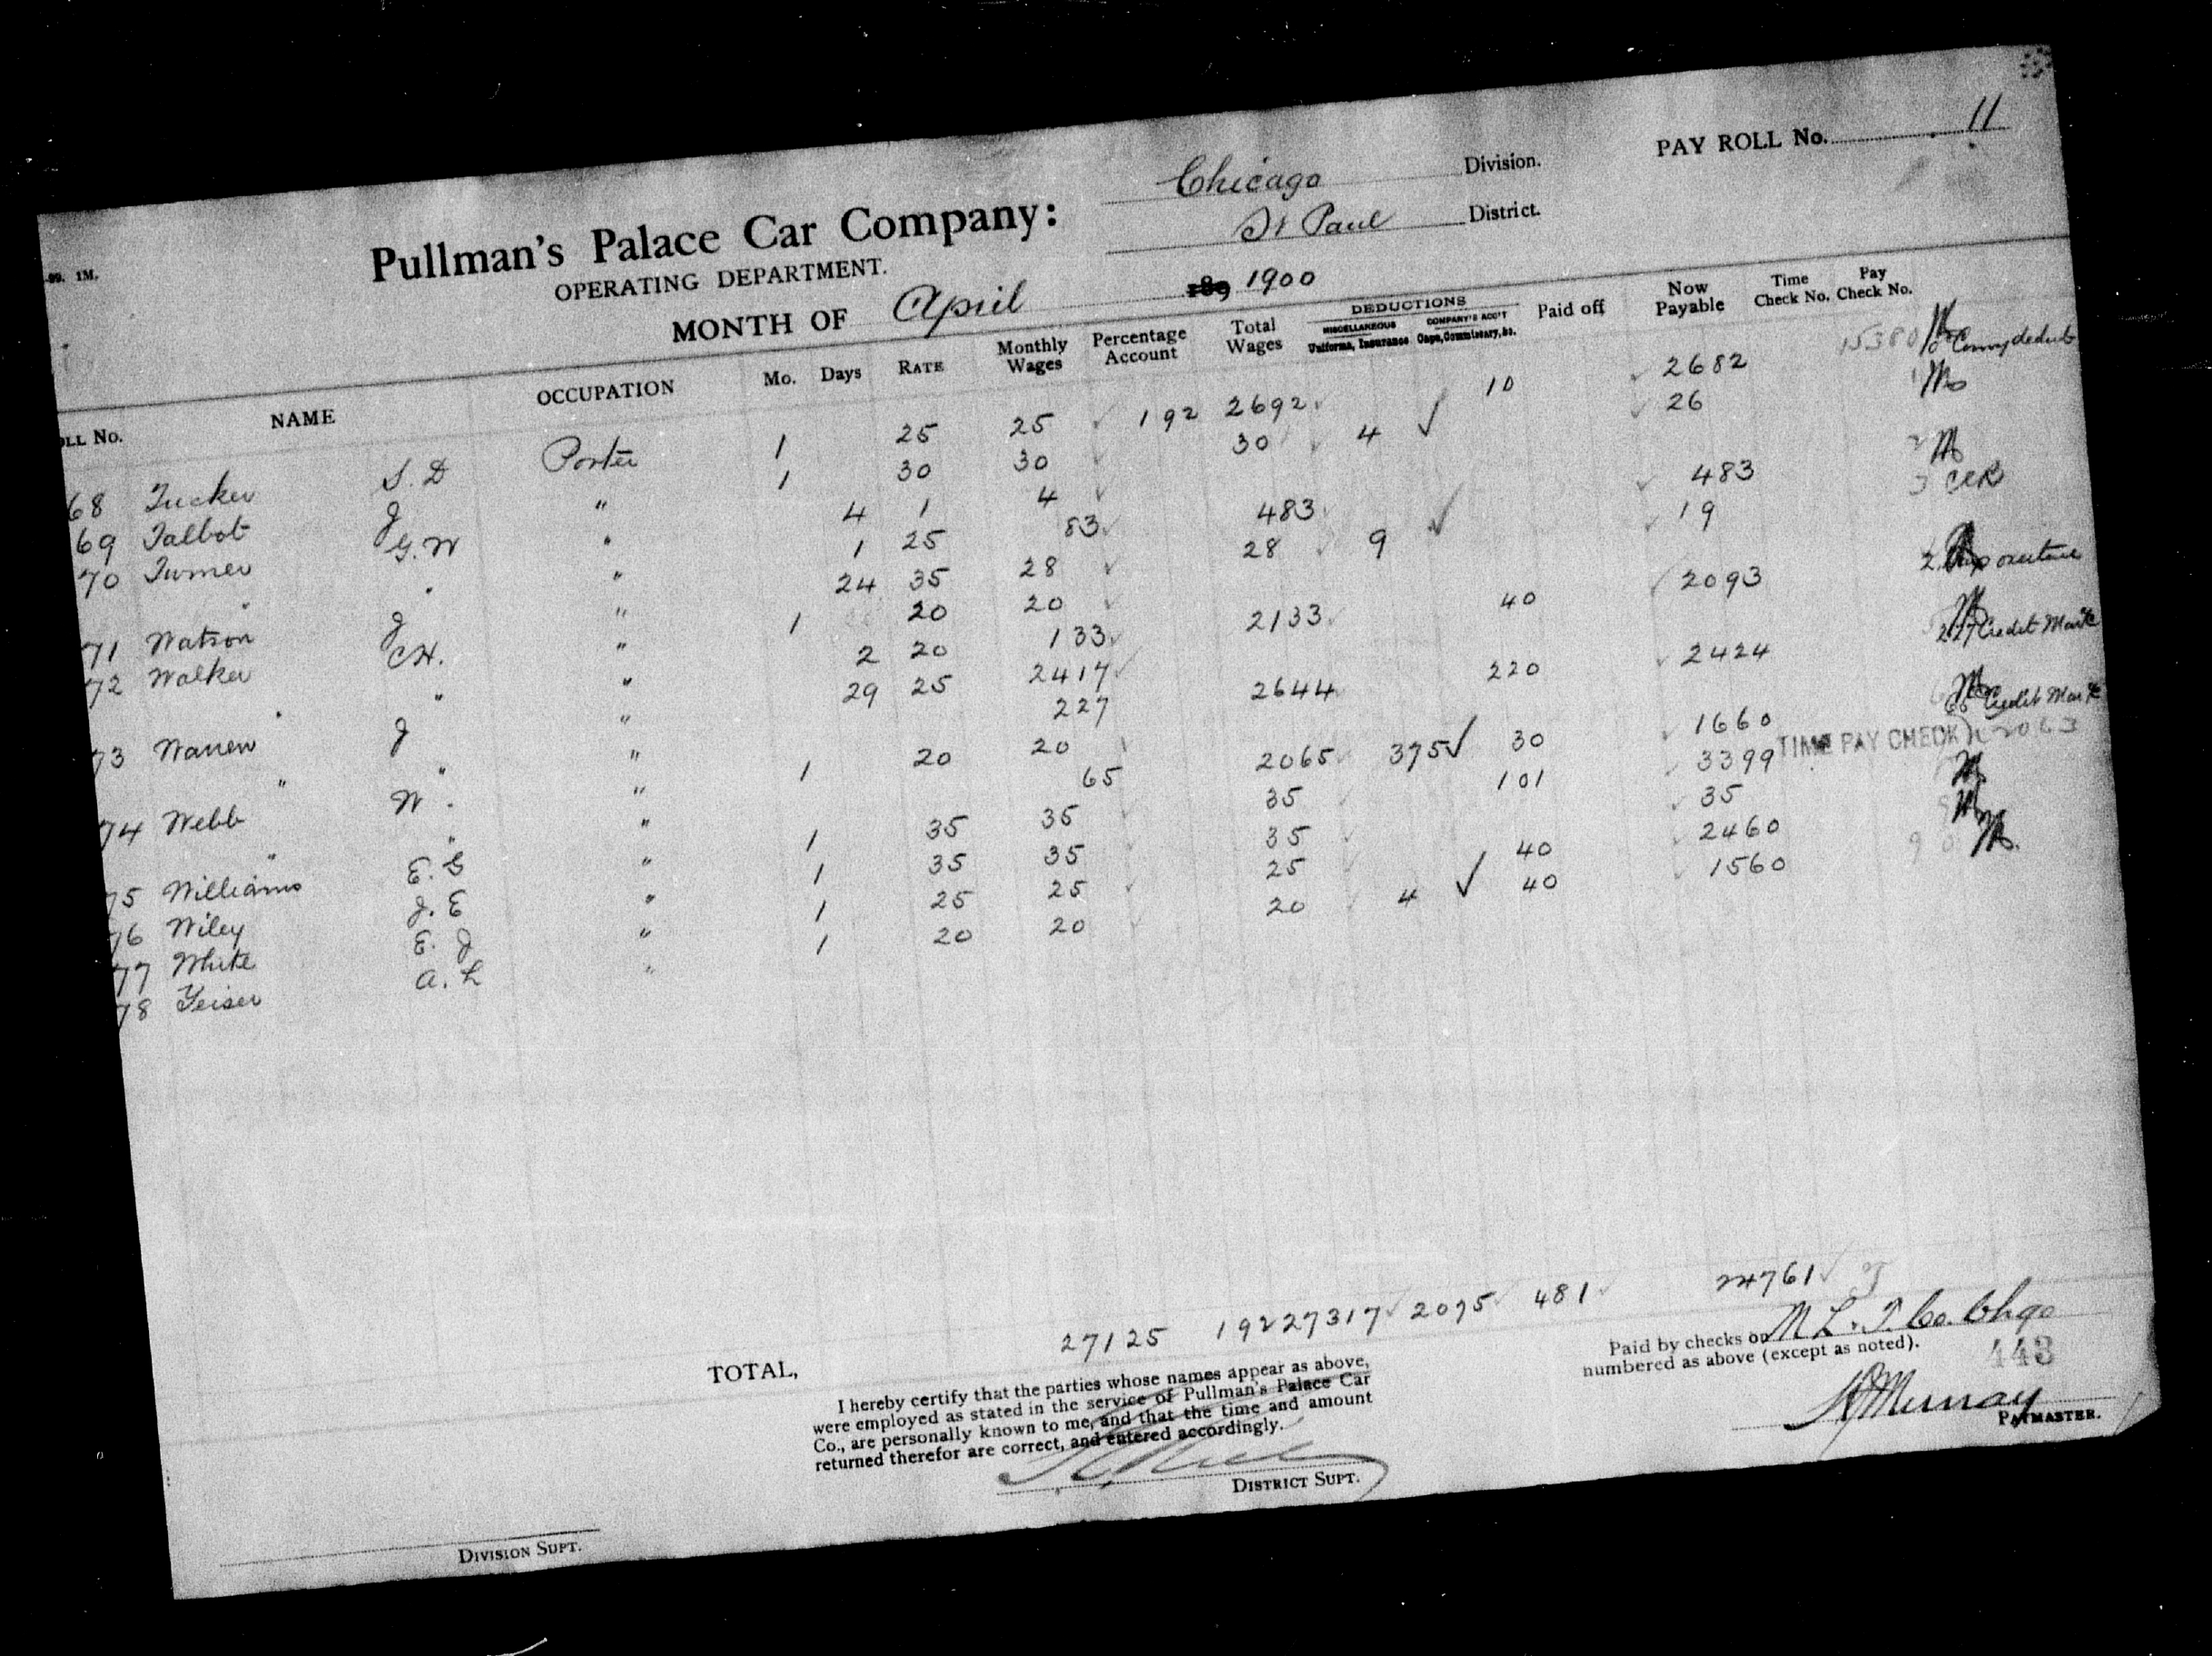 PAY ROLL No. 11
Chicago Division.
St Paul District.
-99. 1M.
Pullman's Palace Car Company:
OPERATING DEPARTMENT.
MONTH OF April 189 1900
OLL No. NAME OCCUPATION Mo. Days RATE Monthly Wages Percentage Account Total Wages DEDUCTIONS MISCELLANEOUS Uniforms, Insurance COMPANY'S ACC'T Caps, Commissary, &c. Paid off Now Payable Time Check No. Pay Check No.
68 Tucker S. D Porter 1 25 25 192 2692 10 2682 15380
69 Talbot J " 1 30 30 30 4 26
70 Turner G. W " 4 1 4
" " " 1 25 83 483 483
71 Watson J " 24 35 28 28 9 19
72 Walker C H. " 1 20 20
" " " 2 20 133 2133 40 2093
73 Warren J " 29 25 2417
" " " 227 2644 220 2424 227 Credit Mark
74 Webb W. " 1 20 20
" " " 65 2065 375 30 1660 65 Credit Mark
75 Williams E. G " 1 35 35 35 101 3399 TIME PAY CHECK
76 Wiley J. E " 1 35 35 35 35
77 White E. J " 1 25 25 25 40 2460
78 Yeiser A. L " 1 20 20 20 4 40 1560
TOTAL, 27125 192 27317 2075 481 24761
I hereby certify that the parties whose names appear as above,
were employed as stated in the service of Pullman's Palace Car
Co., are personally known to me, and that the time and amount
returned therefor are correct, and entered accordingly.
DISTRICT SUPT.
Paid by checks on M L. & T. Co. Chgo
numbered as above (except as noted).
443
Murray
PAYMASTER.
DIVISION SUPT.